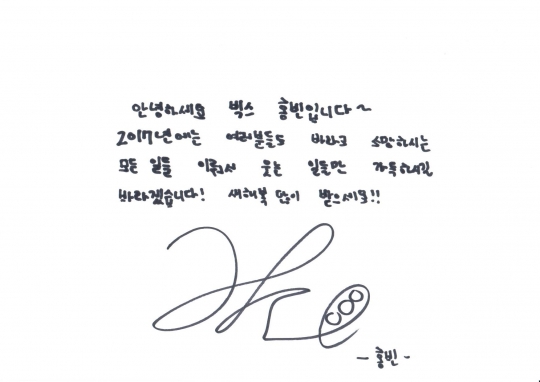 안녕하세요 빅스 홍빈입니다~
2017년에는 여러분들도 바라고 소망하시는
모든 일들 이뤄서 웃는 일들만 가득하시길
바라겠습니다! 새해복 많이 받으세요!!
- 홍빈 -